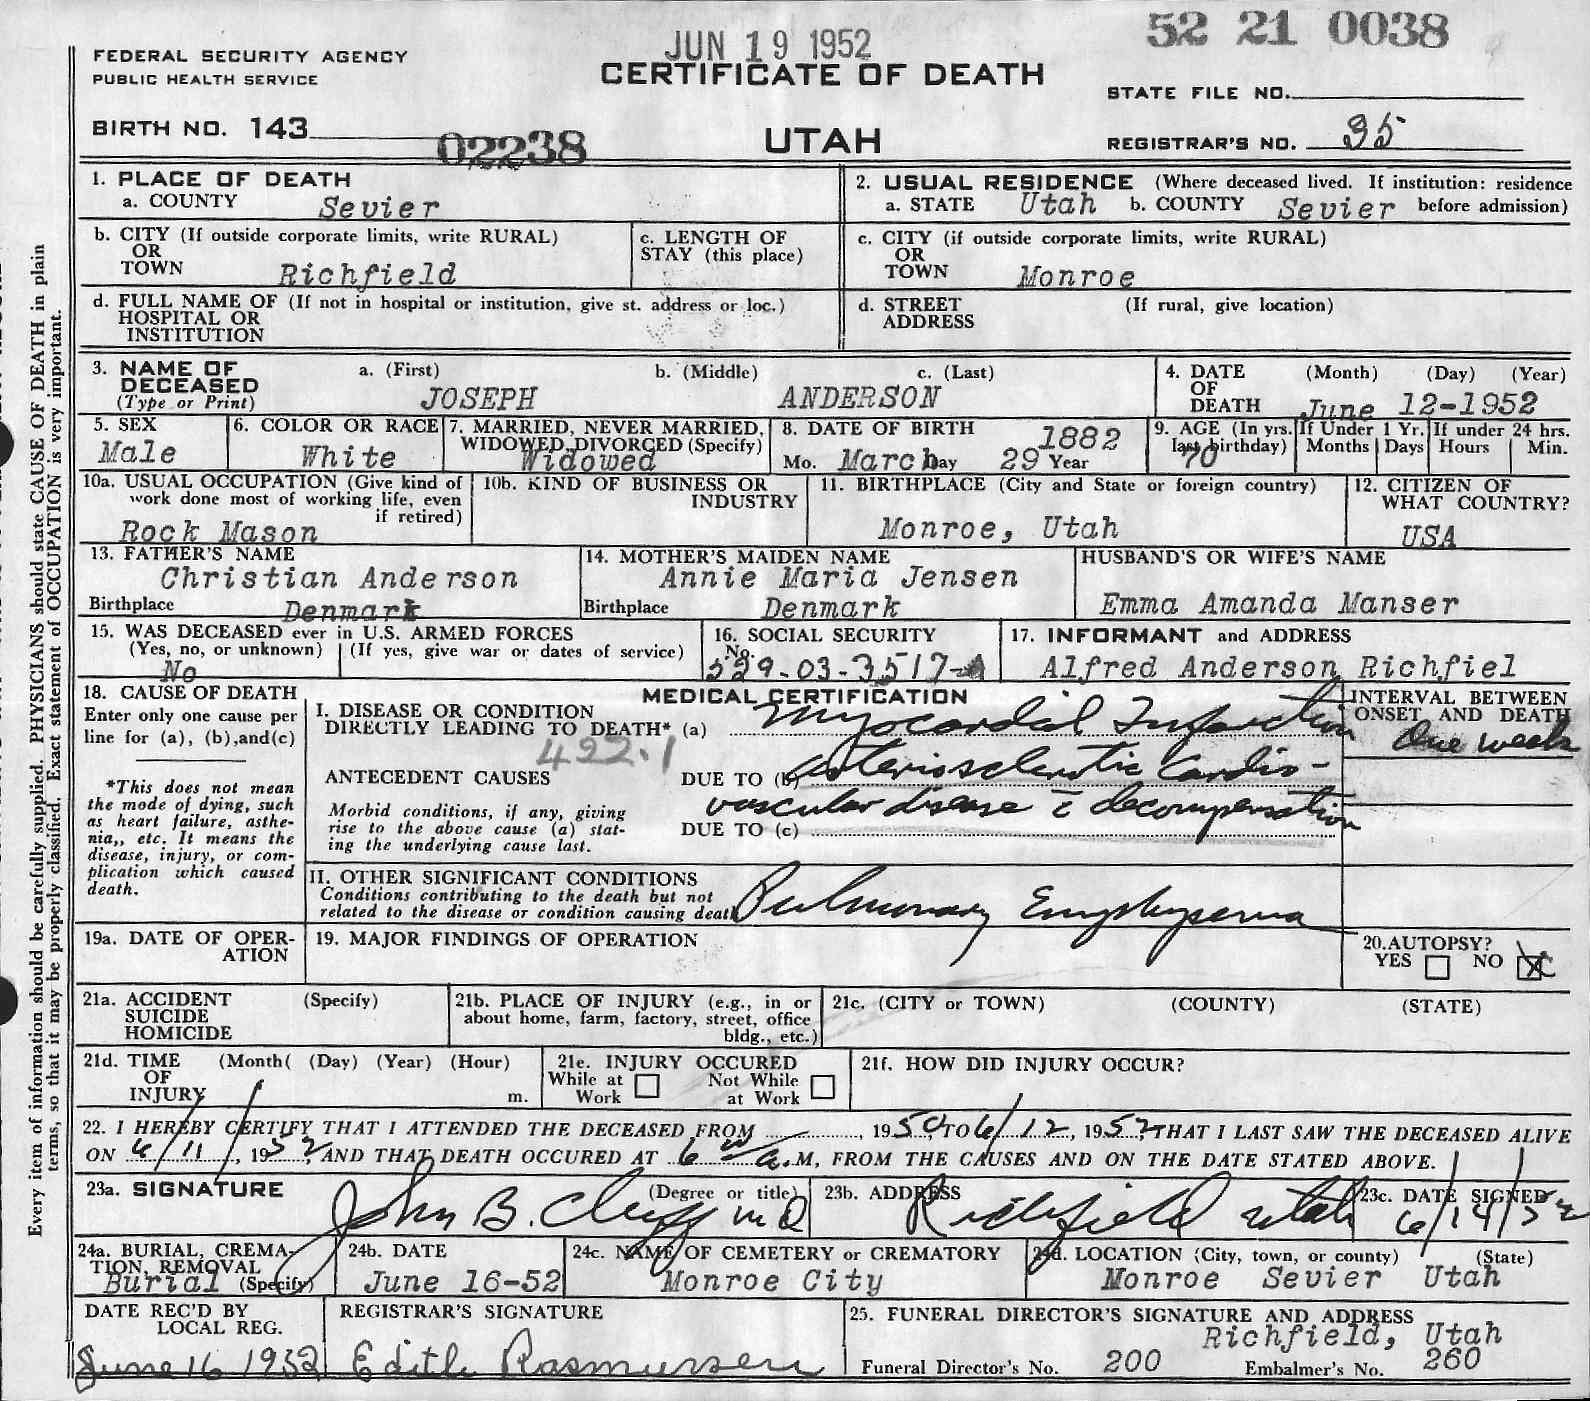 JUN 19 1952
52 21 0038
FEDERAL SECURITY AGENCY
PUBLIC HEALTH SERVICE
CERTIFICATE OF DEATH
STATE FILE NO.
BIRTH NO. 143
02238
UTAH
REGISTRAR'S NO. 35
Every item of information should be carefully supplied. PHYSICIANS should state CAUSE OF DEATH in plain
terms, so that it may be properly classified. Exact statement of OCCUPATION is very important.
1. PLACE OF DEATH
a. COUNTY Sevier
2. USUAL RESIDENCE (Where deceased lived. If institution: residence
a. STATE Utah b. COUNTY Sevier before admission)
b. CITY (If outside corporate limits, write RURAL)
OR
TOWN Richfield
c. LENGTH OF
STAY (this place)
c. CITY (if outside corporate limits, write RURAL)
OR
TOWN Monroe
d. FULL NAME OF (If not in hospital or institution, give st. address or loc.)
HOSPITAL OR
INSTITUTION
d. STREET (If rural, give location)
ADDRESS
3. NAME OF a. (First) b. (Middle) c. (Last)
DECEASED
(Type or Print) JOSEPH ANDERSON
4. DATE (Month) (Day) (Year)
OF
DEATH June 12-1952
5. SEX
Male
6. COLOR OR RACE
White
7. MARRIED, NEVER MARRIED,
WIDOWED, DIVORCED (Specify)
Widowed
8. DATE OF BIRTH 1882
Mo. March Day 29 Year
9. AGE (In yrs.
last birthday)
70
If Under 1 Yr.
Months Days
If under 24 hrs.
Hours Min.
10a. USUAL OCCUPATION (Give kind of
work done most of working life, even
if retired)
Rock Mason
10b. KIND OF BUSINESS OR
INDUSTRY
11. BIRTHPLACE (City and State or foreign country)
Monroe, Utah
12. CITIZEN OF
WHAT COUNTRY?
USA
13. FATHER'S NAME
Christian Anderson
Birthplace Denmark
14. MOTHER'S MAIDEN NAME
Annie Maria Jensen
Birthplace Denmark
HUSBAND'S OR WIFE'S NAME
Emma Amanda Manser
15. WAS DECEASED ever in U.S. ARMED FORCES
(Yes, no, or unknown) (If yes, give war or dates of service)
No
16. SOCIAL SECURITY
No.
529-03-3517-A
17. INFORMANT and ADDRESS
Alfred Anderson Richfiel
18. CAUSE OF DEATH
Enter only one cause per
line for (a), (b),and(c)
*This does not mean
the mode of dying, such
as heart failure, asthe-
nia,, etc. It means the
disease, injury, or com-
plication which caused
death.
MEDICAL CERTIFICATION
I. DISEASE OR CONDITION
DIRECTLY LEADING TO DEATH* (a) Myocardial Infarction
492.1
ANTECEDENT CAUSES DUE TO (b) Arteriosclerotic Cardio-
vascular disease c̄ decompensation
Morbid conditions, if any, giving
rise to the above cause (a) stat-
ing the underlying cause last.
DUE TO (c)
INTERVAL BETWEEN
ONSET AND DEATH
One week
II. OTHER SIGNIFICANT CONDITIONS
Conditions contributing to the death but not
related to the disease or condition causing death
Pulmonary Emphysema
19a. DATE OF OPER-
ATION
19. MAJOR FINDINGS OF OPERATION
20.AUTOPSY?
YES NO X
21a. ACCIDENT (Specify)
SUICIDE
HOMICIDE
21b. PLACE OF INJURY (e.g., in or
about home, farm, factory, street, office
bldg., etc.)
21c. (CITY or TOWN) (COUNTY) (STATE)
21d. TIME (Month( (Day) (Year) (Hour)
OF
INJURY m.
21e. INJURY OCCURED
While at Not While
Work at Work
21f. HOW DID INJURY OCCUR?
22. I HEREBY CERTIFY THAT I ATTENDED THE DECEASED FROM , 1950, TO 6/12, 1952, THAT I LAST SAW THE DECEASED ALIVE
ON 6/11/, 1952, AND THAT DEATH OCCURED AT 6 a.M, FROM THE CAUSES AND ON THE DATE STATED ABOVE.
23a. SIGNATURE (Degree or title)
John B. Cluff MD
23b. ADDRESS
Richfield Utah
23c. DATE SIGNED
6/14/52
24a. BURIAL, CREMA-
TION, REMOVAL
Burial (Specify)
24b. DATE
June 16-52
24c. NAME OF CEMETERY or CREMATORY
Monroe City
24d. LOCATION (City, town, or county) (State)
Monroe Sevier Utah
DATE REC'D BY
LOCAL REG.
June 16 1952
REGISTRAR'S SIGNATURE
Edith Rasmussen
25. FUNERAL DIRECTOR'S SIGNATURE AND ADDRESS
Richfield, Utah
Funeral Director's No. 200 Embalmer's No. 260